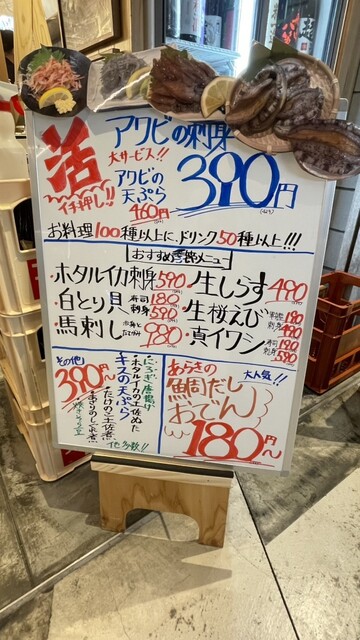 活
イチ押し!!
アワビの刺身
大サービス!!
390円
アワビの
天ぷら
460円
お料理100種以上に、ドリンク50種以上!!!
おすすめ季節メニュー
・ホタルイカ刺身 590
・白とり貝 寿司 180
刺身 590
・馬刺し 980
・生しらす 490
・生桜えび 180
490
・真イワシ 寿司 190
刺身 590
その他!
390円〜
にろぎ唐揚げ
・ホタルイカの土佐ぬた
キスの天ぷら
・たけのこ土佐煮
・あさりのしぐれ煮
・焼きそら豆
他多数!!
大人気!!
あらきの
鯛だし
おでん
180円〜